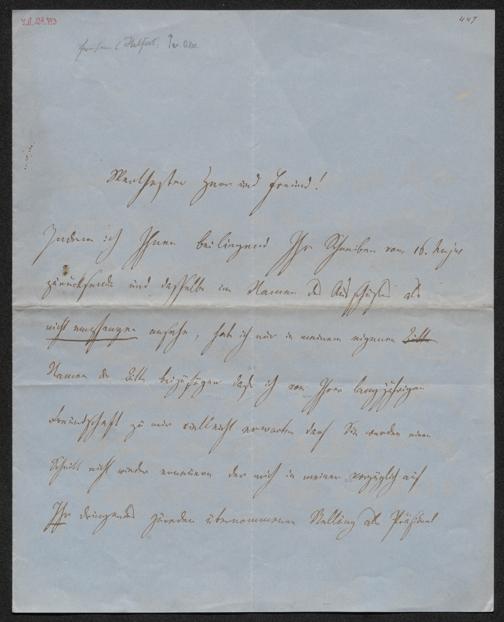 447
Verehrter Herr und Freund!
Indem ich Ihnen beiliegend Ihr Schreiben vom 16.
zurücksende und dasselbe im Namen des Ausschusses als
nicht empfangen ansehe, habe ich nur in meinem eigenen Bitte
Namen die Bitte beizufügen daß ich von Ihrer langjährigen
Freundschaft zu mir vielleicht erwarten darf Sie werden einen
Schritt nicht wieder erneuern der mich in meiner vorzüglich auf
Ihr dringendes Zureden übernommenen Stellung als Präsident